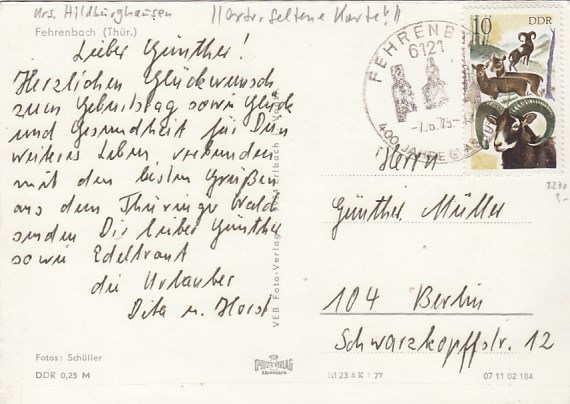 Krs. Hildburghausen
!!arter seltene Karte!!
Fehrenbach (Thür.)
Lieber Günther!
Herzlichen Glückwunsch
zum Geburtstag sowie Glück
und Gesundheit für Dein
weiteres Leben, verbunden
mit den besten Grüßen
aus dem Thüringer Wald
senden Dir lieber Günther
sowie Edeltraut
die Urlauber
Dita u. Horst
Fotos: Schüller
DDR 0,25 M
VEB Foto-Verlag Erlbach
FEHRENB
6121
400 JAHRE
10 DDR
Herrn
Günther Müller
104 Berlin
Schwarzkopffstr. 12
FOTO-VERLAG
ERLBACH
III 23 4 K 1 77
07 11 02 184